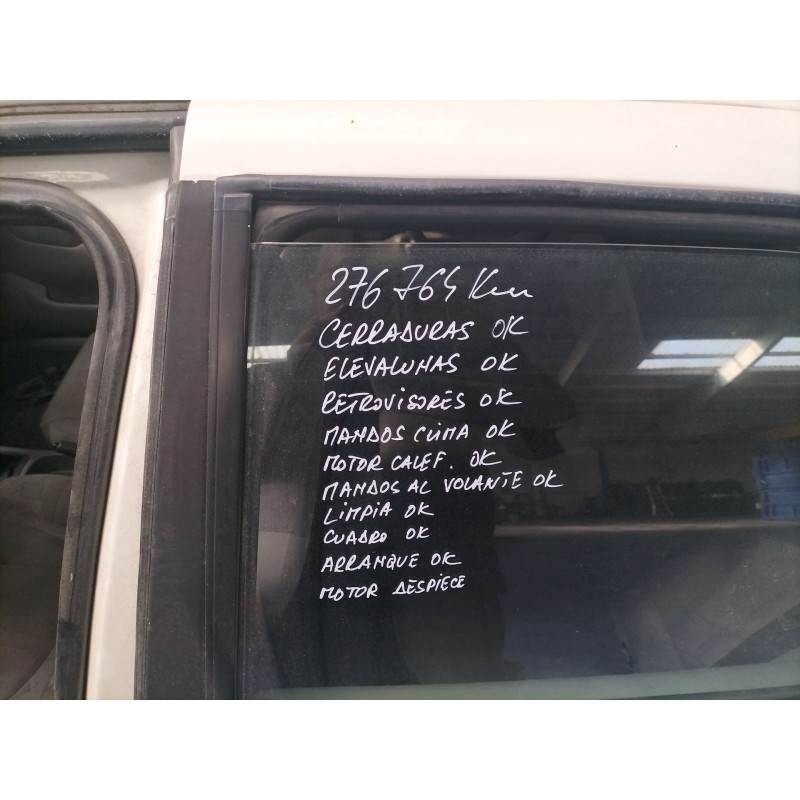 276764 Km
CERRADURAS OK
ELEVALUNAS OK
RETROVISORES OK
MANDOS CLIMA OK
MOTOR CALEF. OK
MANDOS AL VOLANTE OK
LIMPIA OK
CUADRO OK
ARRANQUE OK
MOTOR DESPIECE